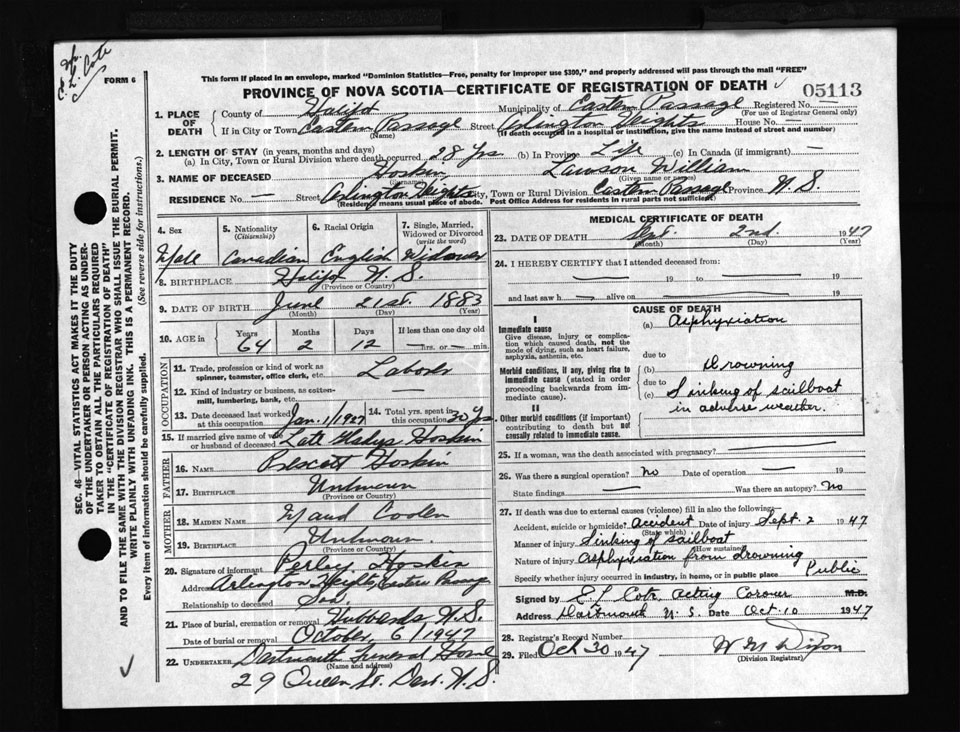 FORM 6
This form if placed in an envelope, marked "Dominion Statistics—Free, penalty for improper use $300," and properly addressed will pass through the mail "FREE"
PROVINCE OF NOVA SCOTIA—CERTIFICATE OF REGISTRATION OF DEATH
05113
1. PLACE OF DEATH County of Halifax Municipality of Eastern Passage Registered No. —
(For use of Registrar General only)
If in City or Town Eastern Passage Street Arlington Heights House No. —
(Name) (If death occurred in a hospital or institution, give the name instead of street and number)
2. LENGTH OF STAY (in years, months and days)
(a) In City, Town or Rural Division where death occurred 28 Yrs (b) In Province Life (c) In Canada (if immigrant) —
3. NAME OF DECEASED Hoskin Lawson William
(Surname) (Given name or names)
RESIDENCE No. — Street Arlington Heights City, Town or Rural Division Eastern Passage Province N.S.
(Residence means usual place of abode. Post Office Address for residents in rural parts not sufficient)
4. Sex 5. Nationality (Citizenship) 6. Racial Origin 7. Single, Married, Widowed or Divorced (write the word)
Male Canadian English Widower
8. BIRTHPLACE Halifax N.S.
(Province or Country)
9. DATE OF BIRTH June 21st. 1883
(Month) (Day) (Year)
10. AGE in Years Months Days If less than one day old
64 2 12 — hrs. or — min.
OCCUPATION
11. Trade, profession or kind of work as spinner, teamster, office clerk, etc. Laborer
12. Kind of industry or business, as cotton-mill, lumbering, bank, etc.
13. Date deceased last worked at this occupation Jan. 1/1927 14. Total yrs. spent in this occupation 30 Yrs
15. If married give name of wife or husband of deceased Late Gladys Hoskin
FATHER
16. NAME Prescott Hoskin
17. BIRTHPLACE Unknown
(Province or Country)
MOTHER
18. MAIDEN NAME Maud
19. BIRTHPLACE Unknown
(Province or Country)
20. Signature of informant Perley Hoskin
Address Arlington Heights, Eastern Passage
Relationship to deceased Son
21. Place of burial, cremation or removal Hubbards, N.S.
Date of burial or removal October, 6/1947
22. UNDERTAKER Dartmouth Funeral Home
(Name and address)
29 Queen St. Dart. N.S.
MEDICAL CERTIFICATE OF DEATH
23. DATE OF DEATH Sept. 2nd. 1947
(Month) (Day) (Year)
24. I HEREBY CERTIFY that I attended deceased from:
— 19 — to — 19
and last saw h — alive on — 19
CAUSE OF DEATH
I
Immediate cause
Give disease, injury or complication which caused death, not the mode of dying, such as heart failure, asphyxia, asthenia, etc.
(a) Asphyxiation
due to
Morbid conditions, if any, giving rise to immediate cause (stated in order proceeding backwards from immediate cause).
(b) Drowning
due to
(c) Sinking of sailboat
in adverse weather.
II
Other morbid conditions (if important) contributing to death but not causally related to immediate cause.
25. If a woman, was the death associated with pregnancy? —
26. Was there a surgical operation? No Date of operation — 19
State findings — Was there an autopsy? No
27. If death was due to external causes (violence) fill in also the following:
Accident, suicide or homicide? Accident Date of injury Sept. 2 1947
(State which)
Manner of injury Sinking of sailboat
(How sustained)
Nature of injury Asphyxiation from drowning
Specify whether injury occurred in industry, in home, or in public place Public
Signed by E L Cote, Acting Coroner M.D.
Address Dartmouth N.S. Date Oct. 10 1947
28. Registrar's Record Number
29. Filed Oct 30 1947 W M Dixon
(Division Registrar)
SEC. 46—VITAL STATISTICS ACT MAKES IT THE DUTY
OF THE UNDERTAKER OR PERSON ACTING AS UNDER-
TAKER TO OBTAIN ALL THE PARTICULARS REQUIRED
IN THE "CERTIFICATE OF REGISTRATION OF DEATH"
AND TO FILE THE SAME WITH THE DIVISION REGISTRAR WHO SHALL ISSUE THE BURIAL PERMIT.
WRITE PLAINLY WITH UNFADING INK. THIS IS A PERMANENT RECORD.
Every item of information should be carefully supplied. (See reverse side for instructions.)